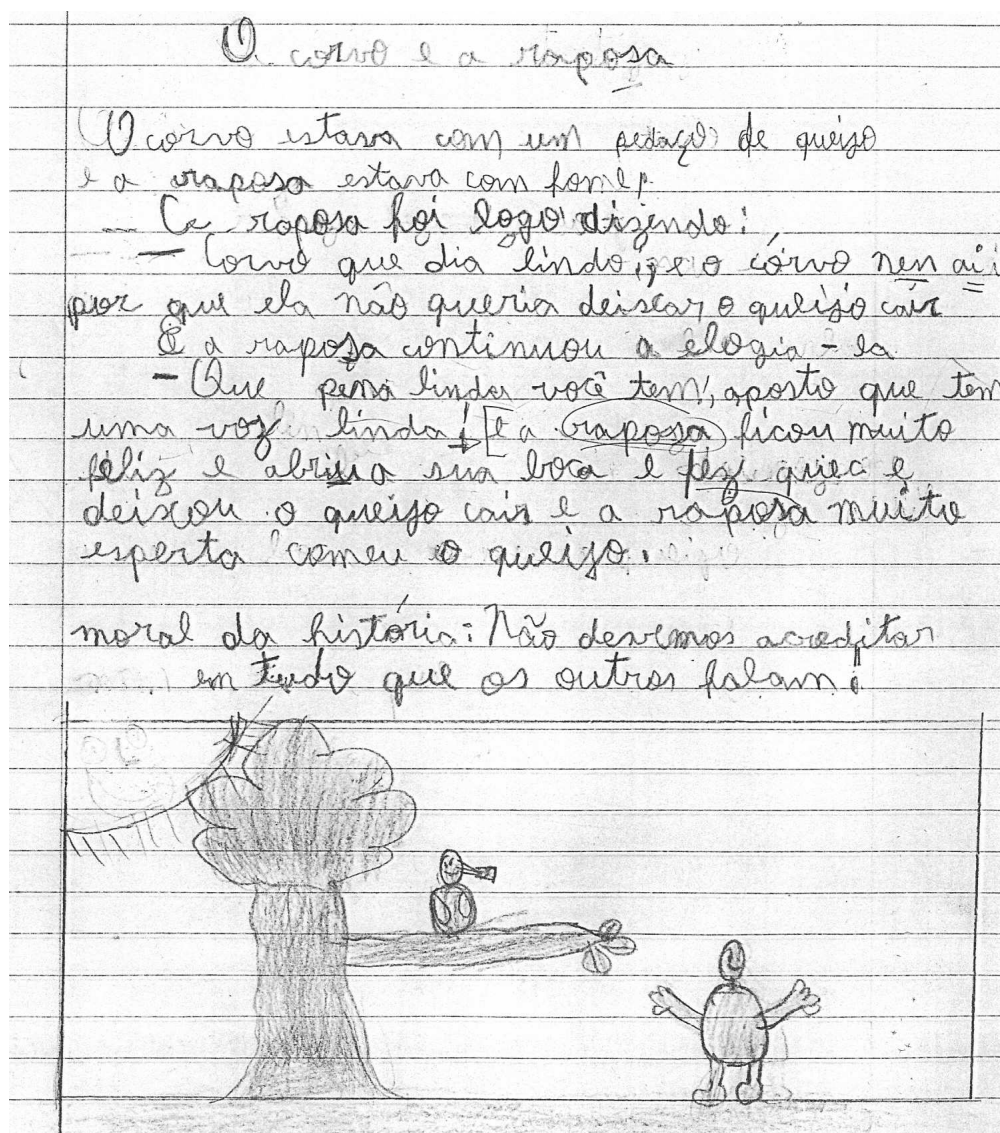 O corvo e a raposa
O corvo estava com um pedaço de queijo
e a raposa estava com fome.
A raposa foi logo dizendo:
— Corvo que dia lindo, e o corvo nen aí
por que ela não queria deixar o queijo cair
E a raposa continuou a elogia-la
— Que pena linda você tem, aposto que tem
uma voz linda! [E a raposa ficou muito
feliz e abriu a sua boca e fez e
deixou o queijo cair e a raposa muito
esperta comeu o queijo.
moral da história: Não devemos acreditar
em tudo que os outros falam!